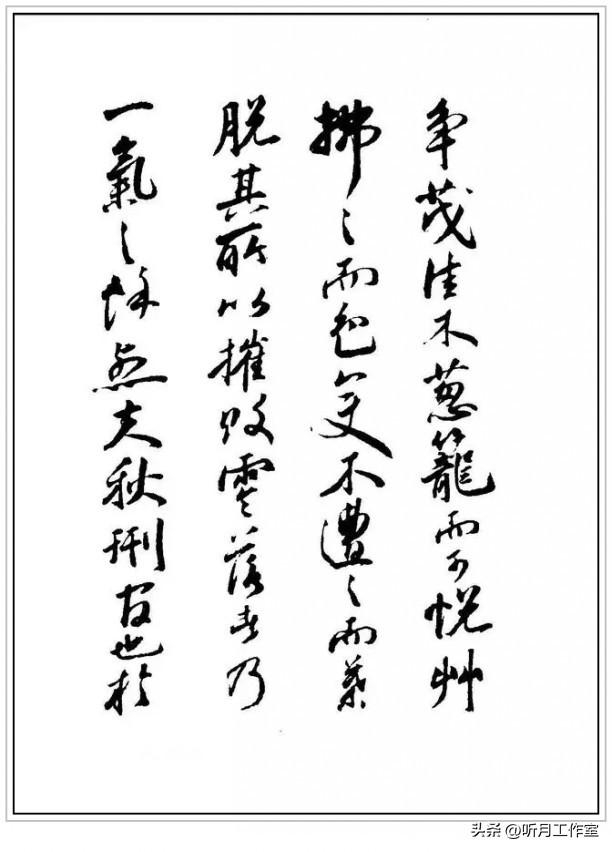 争茂佳木葱籠而可悦艸
拂之而色变木遭之而葉
脱其所以摧败零落者乃
一氣之餘烈夫秋刑官也於
头条 @听月工作室